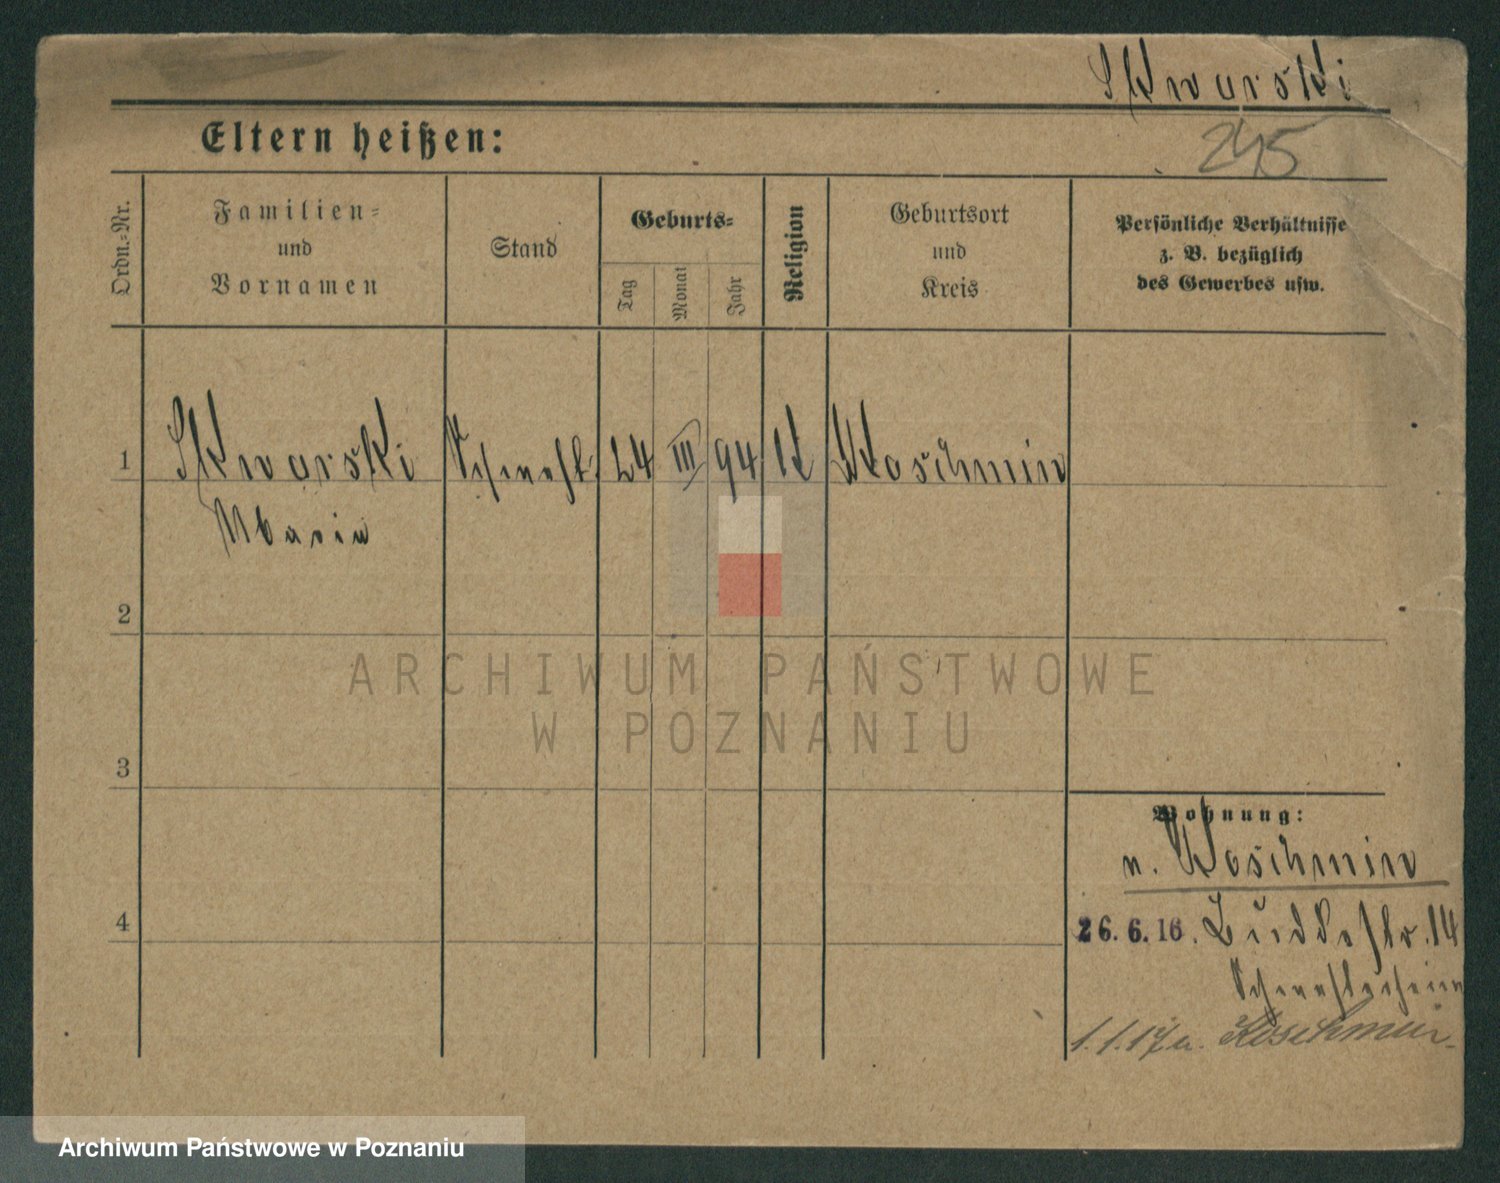 Skwarski
245
Eltern heißen:
Ordn.-Nr.
Familien-
und
Vornamen
Stand
Geburts-
Tag
Monat
Jahr
Religion
Geburtsort
und
Kreis
Persönliche Verhältnisse
z. B. bezüglich
des Gewerbes usw.
1 Skwarski 24 III 94 K Koschmin
Maria
2
ARCHIWUM PAŃSTWOWE
W POZNANIU
3
Wohnung:
n. Koschmin
4
26.6.16. Buddestr. 14
1.1.17 n. Koschmin
Archiwum Państwowe w Poznaniu